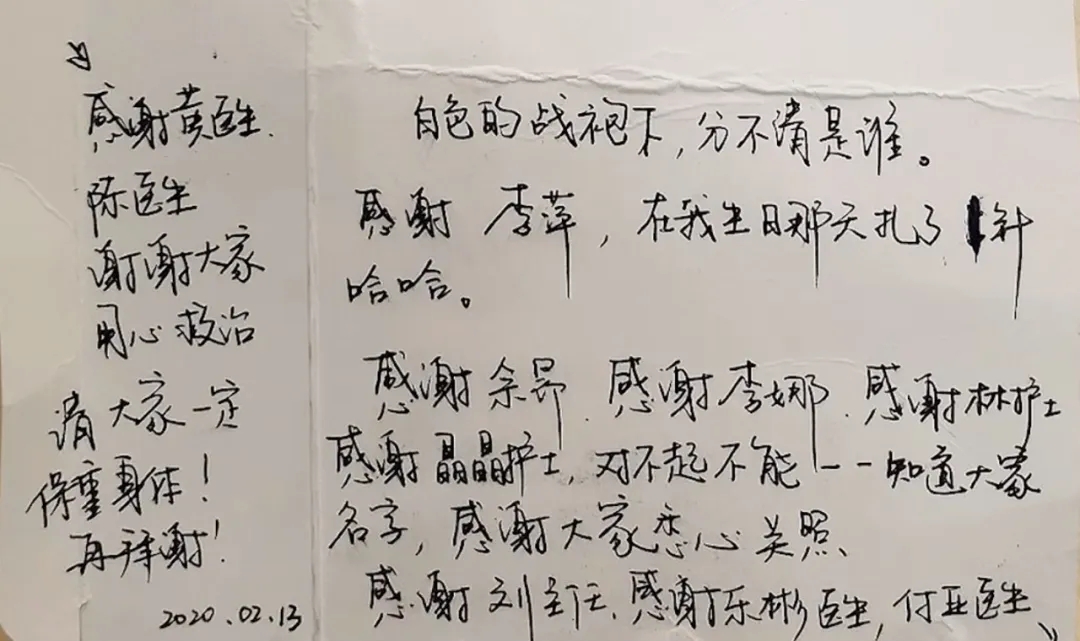 白色的战袍下，分不清是谁。
感谢 李萍，在我生日那天扎了针
哈哈。
感谢余昂、感谢李娜、感谢林护士
感谢晶晶护士，对不起不能一一知道大家
名字，感谢大家悉心关照、
感谢刘主任、感谢彬医生，付亚医生
感谢黄医生、
陈医生
谢谢大家
用心救治
请大家一定
保重身体！
再拜谢！
2020.02.13